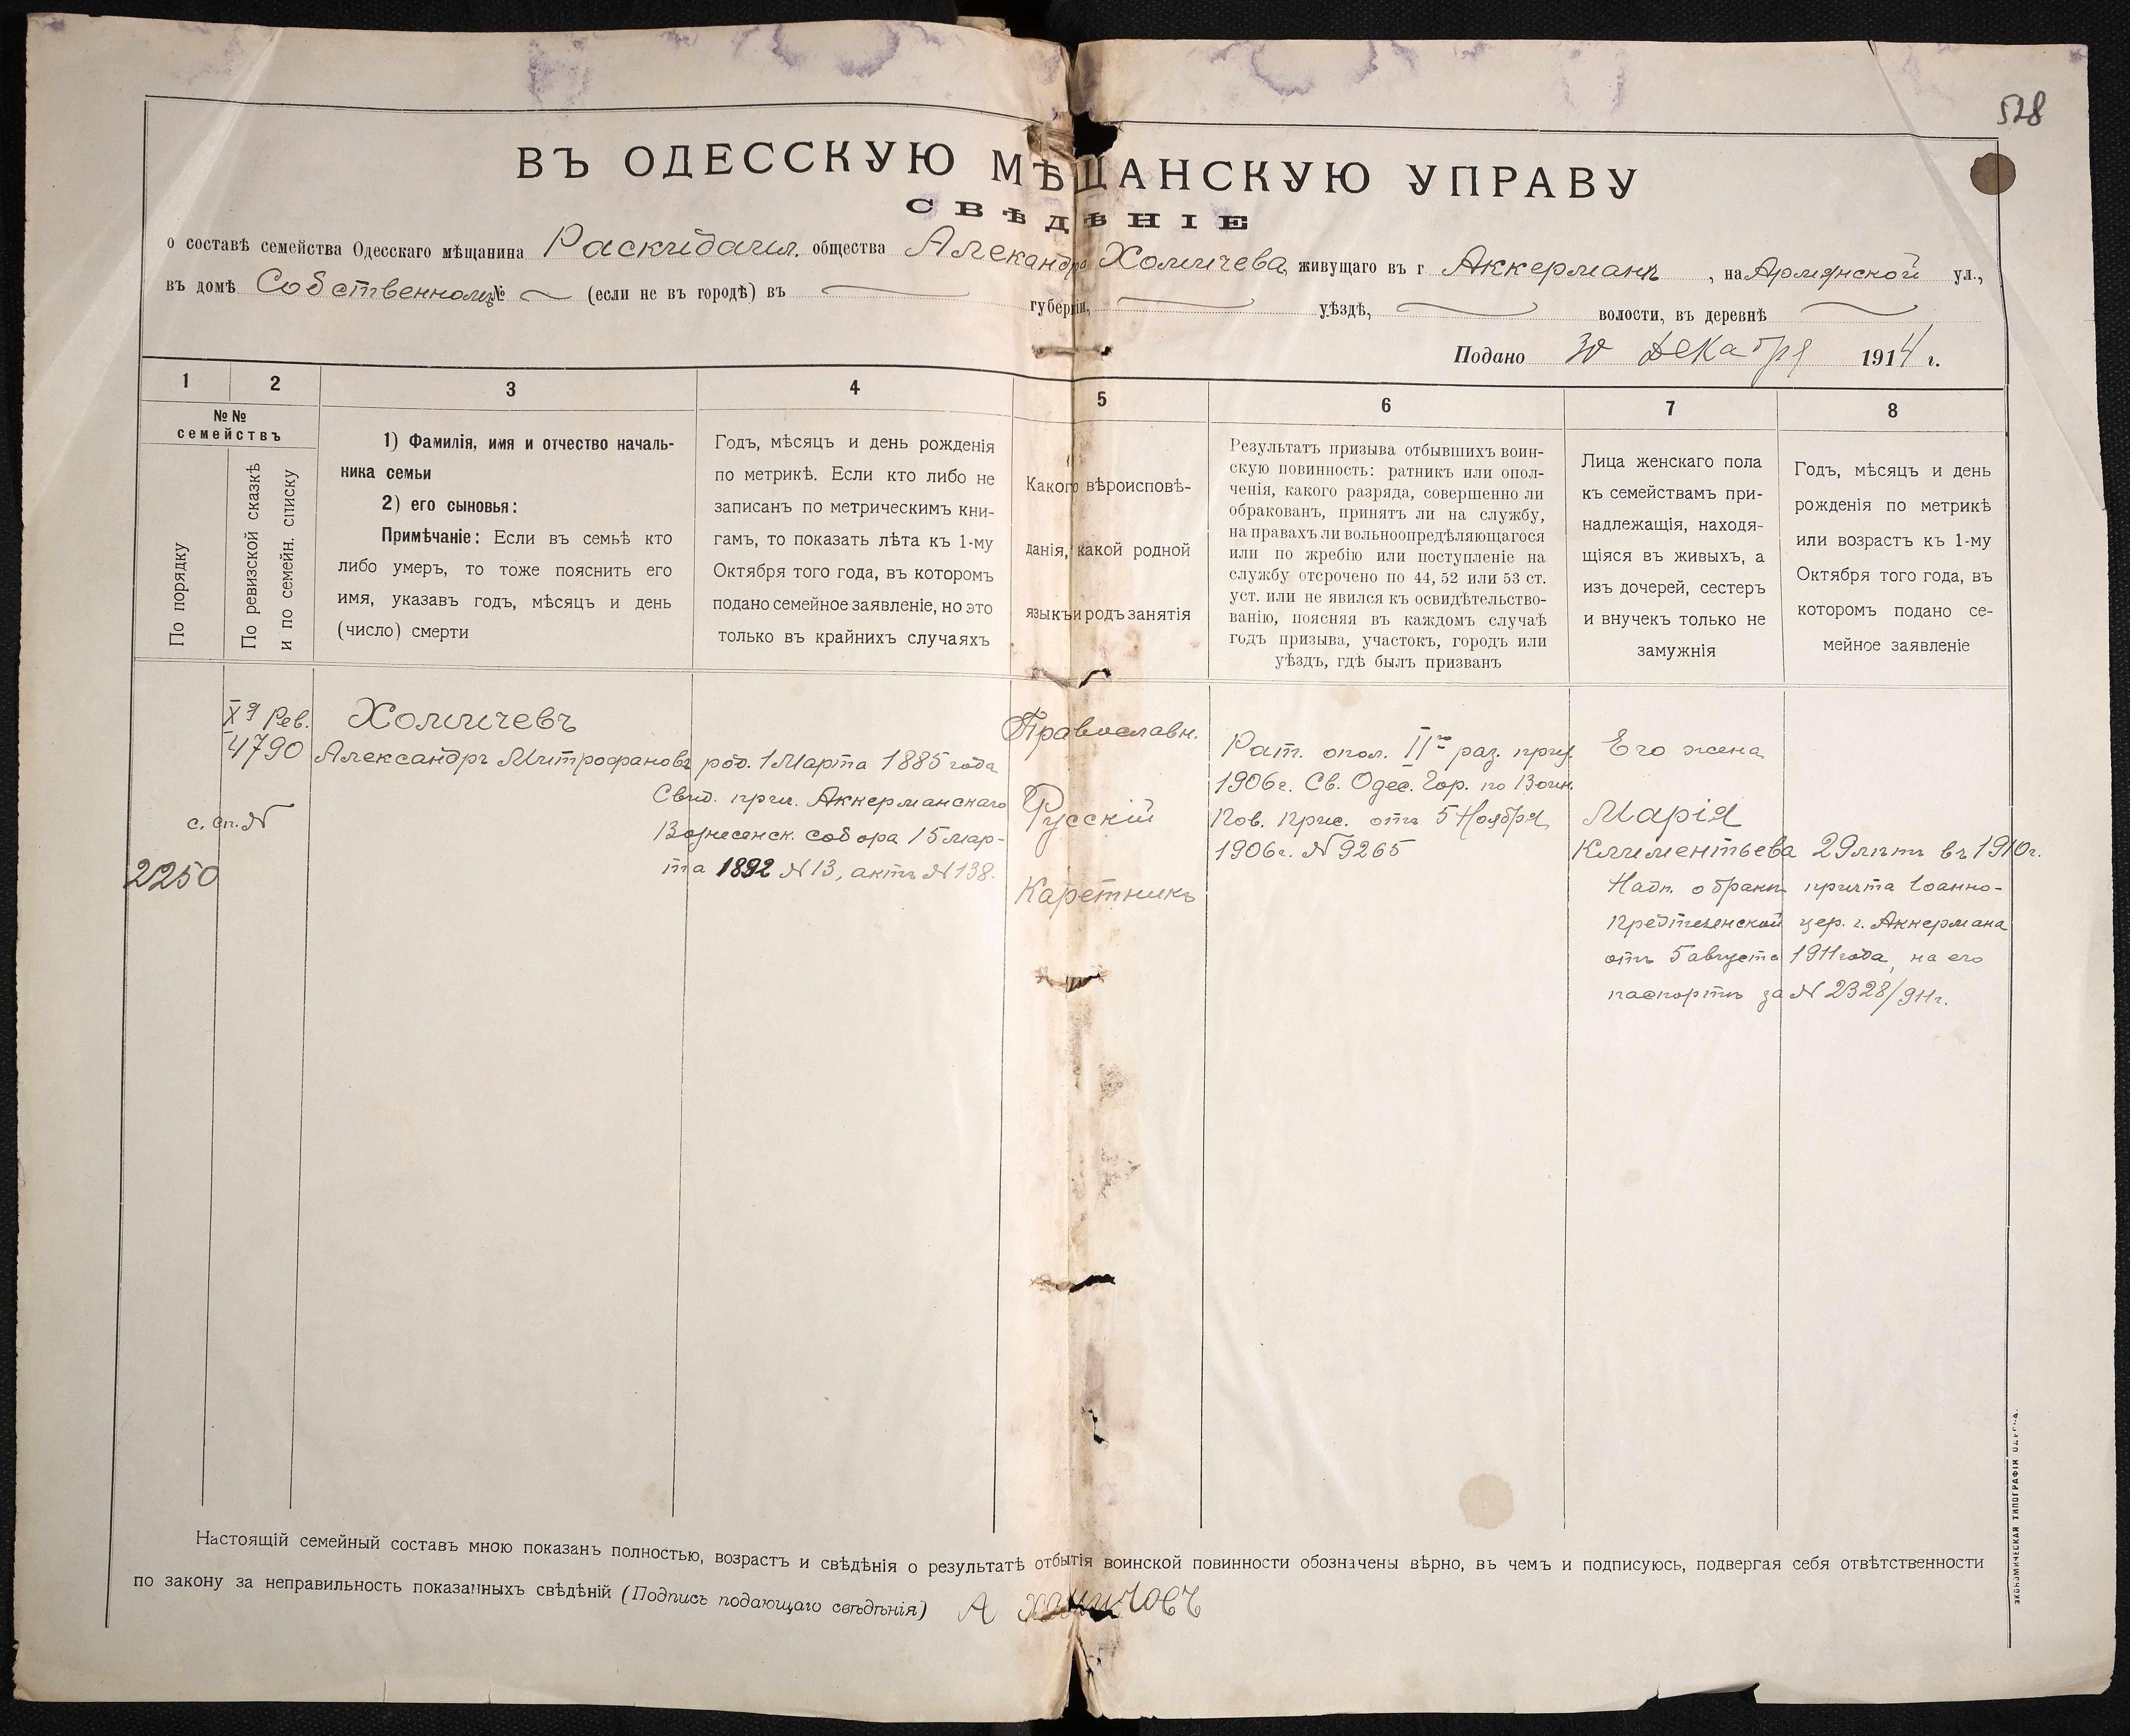 528
ВЪ ОДЕССКУЮ МѢЩАНСКУЮ УПРАВУ
СВѢДѢНІЕ
о составѣ семейства Одесскаго мѣщанина Раскидаил. общества Александра Хомичева, живущаго въ г Аккерманѣ, на Армянской ул.,
въ домѣ Собственномъ № (если не въ городѣ) въ губерніи, уѣздѣ, волости, въ деревнѣ
Подано 30 Декабря 1914 г.
1 2 3 4 5 6 7 8
№№
семействъ
По порядку
По ревизской сказкѣ
и по семейн. списку
1) Фамилія, имя и отчество началь-
ника семьи
2) его сыновья:
Примѣчаніе: Если въ семьѣ кто
либо умеръ, то тоже пояснить его
имя, указавъ годъ, мѣсяцъ и день
(число) смерти
Годъ, мѣсяцъ и день рожденія
по метрикѣ. Если кто либо не
записанъ по метрическимъ кни-
гамъ, то показать лѣта къ 1-му
Октября того года, въ которомъ
подано семейное заявленіе, но это
только въ крайнихъ случаяхъ
Какого вѣроисповѣ-
данія, какой родной
языкъ и родъ занятія
Результатъ призыва отбывшихъ воин-
скую повинность: ратникъ или опол-
ченія, какого разряда, совершенно ли
обракованъ, принятъ ли на службу,
на правахъ ли вольноопредѣляющагося
или по жребію или поступленіе на
службу отсрочено по 44, 52 или 53 ст.
уст. или не явился къ освидѣтельство-
ванію, поясняя въ каждомъ случаѣ
годъ призыва, участокъ, городъ или
уѣздъ, гдѣ былъ призванъ
Лица женскаго пола
къ семействамъ при-
надлежащія, находя-
щіяся въ живыхъ, а
изъ дочерей, сестеръ
и внучекъ только не
замужнія
Годъ, мѣсяцъ и день
рожденія по метрикѣ
или возрастъ къ 1-му
Октября того года, въ
которомъ подано се-
мейное заявленіе
Рев.
4790
с. сп. №
2250
Хомичевъ
Александръ Митрофановъ
род. 1 Марта 1885 года
Свид. прич. Аккерманскаго
Вознесенск. собора 15 мар-
та 1892 № 13, актъ № 138.
Православн.
Русскій
Каретникъ
Рат. опол. II раз. приз.
1906 г. Св. Одес. Гор. по Воин.
Пов. Прис. отъ 5 Ноября
1906 г. № 9265
Его жена
Марія
Климентьева 29 лѣтъ въ 1910 г.
Надп. о бракѣ причта Іоанно-
Предтеченской цер. г. Аккермана
отъ 5 августа 1911 года, на его
паспортѣ за № 2328/911 г.
Настоящій семейный составъ мною показанъ полностью, возрастъ и свѣдѣнія о результатѣ отбытія воинской повинности обозначены вѣрно, въ чемъ и подписуюсь, подвергая себя отвѣтственности
по закону за неправильность показанныхъ свѣдѣній (Подпись подающаго свѣдѣнія) А Хомичовъ
ЭКОНОМИЧЕСКАЯ ТИПОГРАФІЯ ОДЕССА.